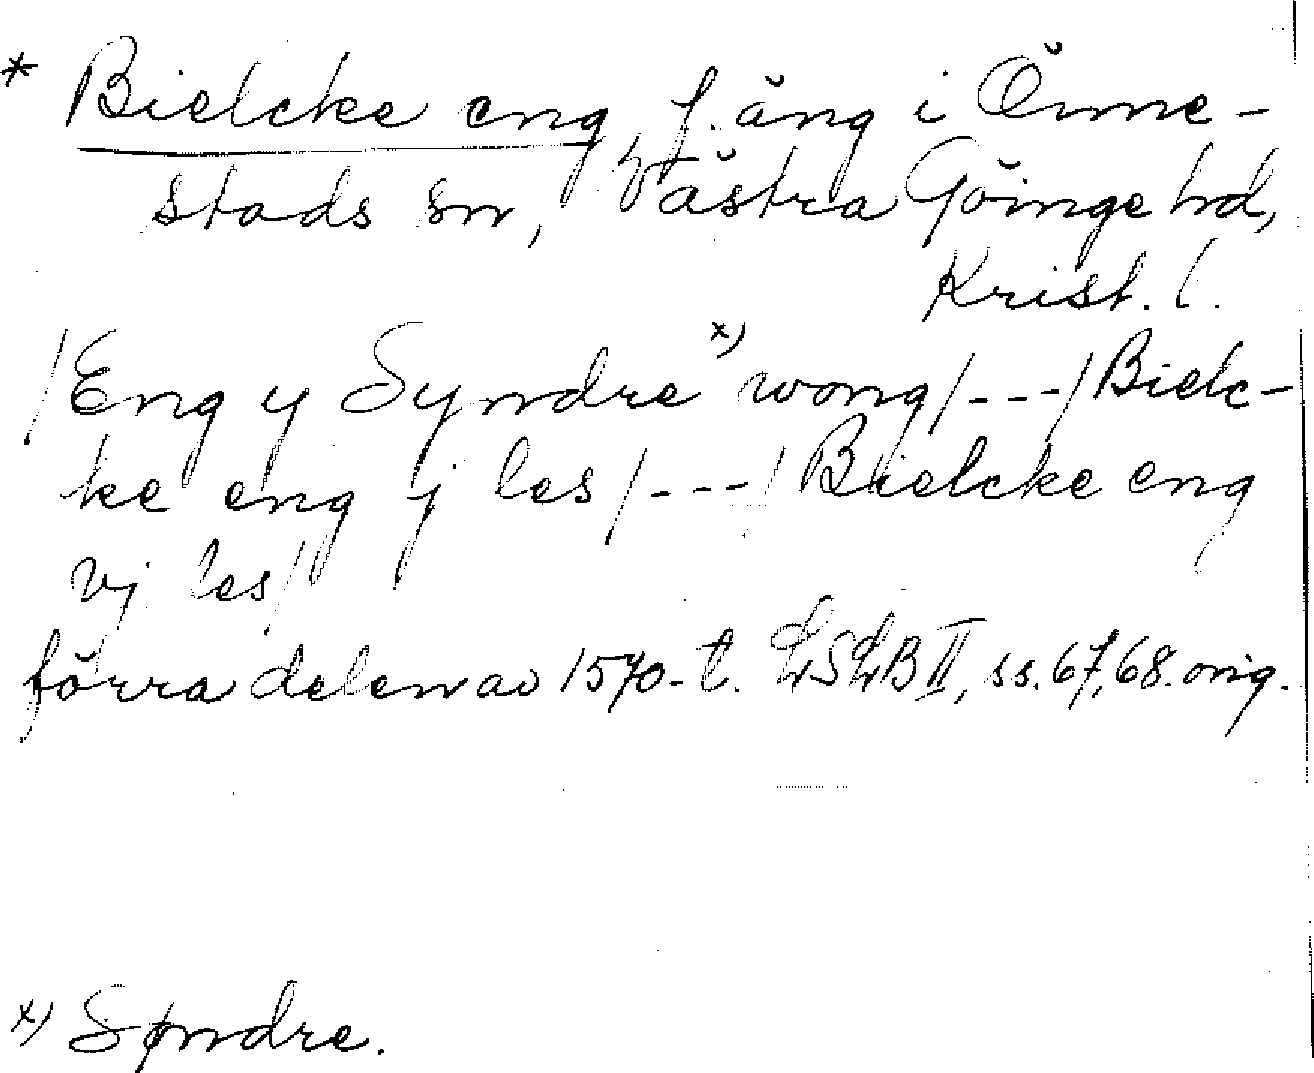 * Bielcke eng, f. äng i Önne-
stads sn, Västra Göinge hd,
Krist. l.
/Eng y Syndre x) wong/---/Bielc-
ke eng j les/---/Bielcke eng
vj les/
förra delen av 1570-t. LSLB II, ss. 67, 68. orig.
x) Søndre.